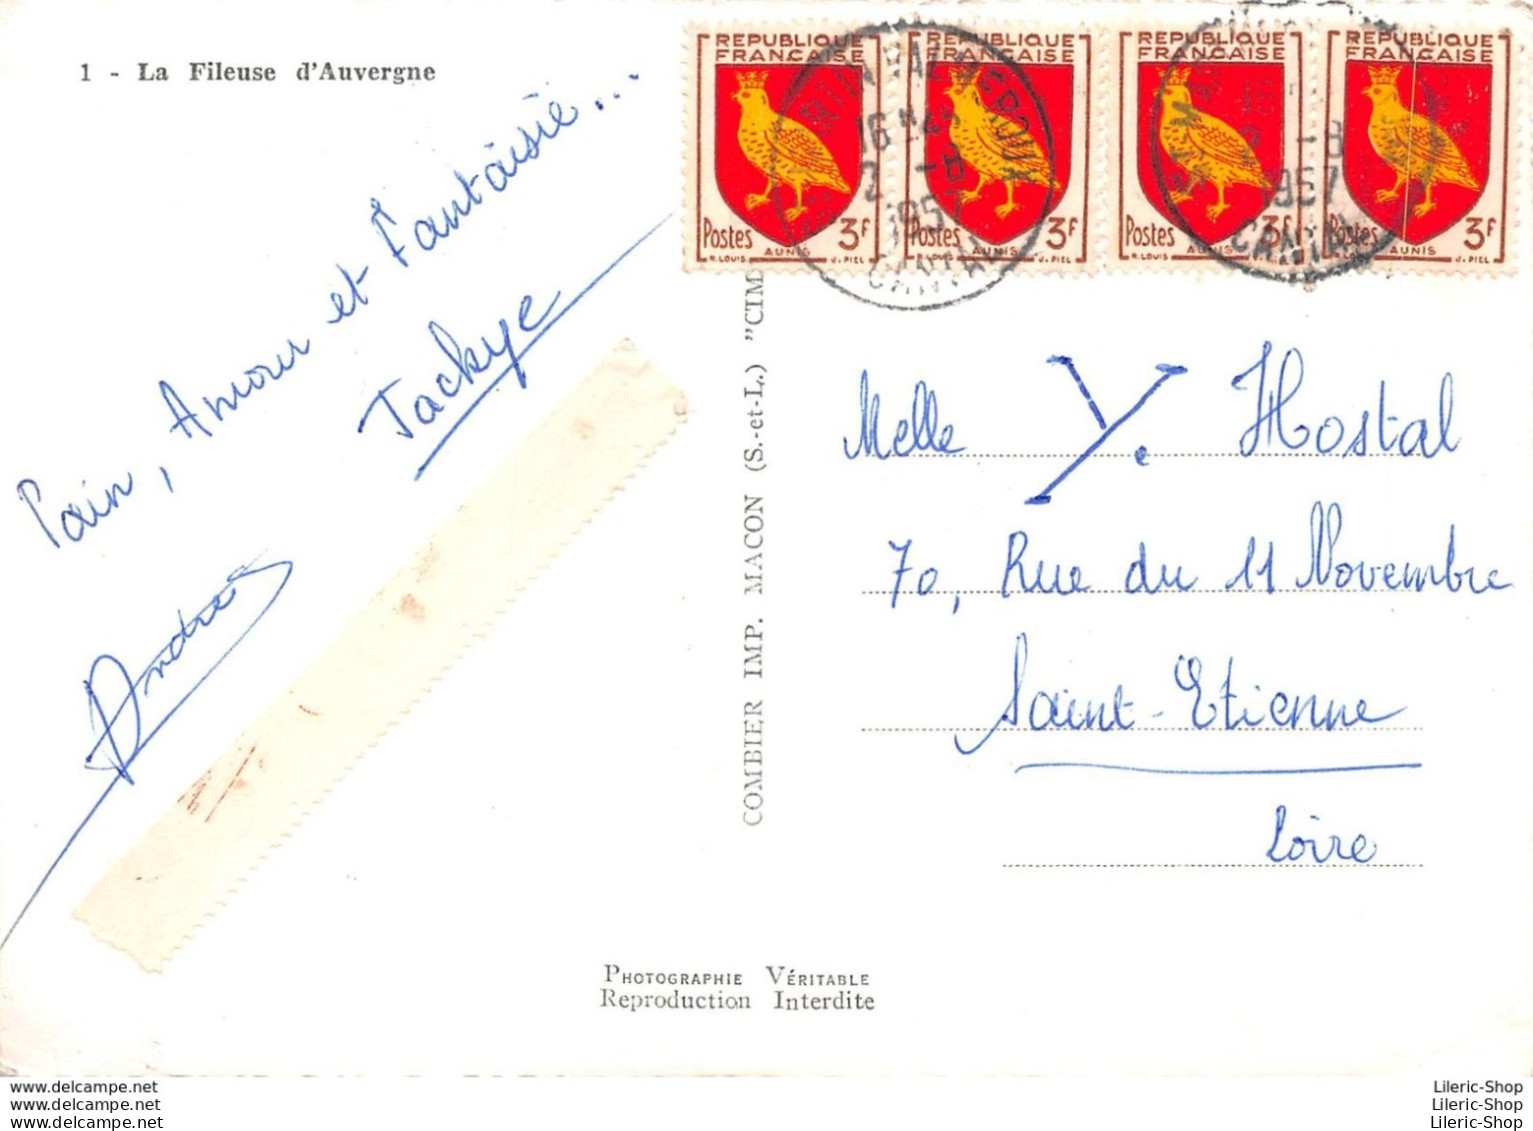 1 - La Fileuse d'Auvergne
Pain, Amour et Fantaisie...
Jackye
REPUBLIQUE
FRANÇAISE
Postes 3F
AUNIS
R. LOUIS J. PIEL
REPUBLIQUE
FRANÇAISE
Postes 3F
AUNIS
R. LOUIS J. PIEL
REPUBLIQUE
FRANÇAISE
Postes 3F
AUNIS
R. LOUIS J. PIEL
REPUBLIQUE
FRANÇAISE
Postes 3F
AUNIS
R. LOUIS J. PIEL
16 H 45
2 -8
1957
CANTAL
-8
1957
CANTAL
COMBIER IMP. MACON (S.-et-L.) "CIM
Melle Y. Hostal
70, Rue du 11 Novembre
Saint-Etienne
Loire
PHOTOGRAPHIE VÉRITABLE
Reproduction Interdite
www.delcampe.net
www.delcampe.net
www.delcampe.net
Lileric-Shop
Lileric-Shop
Lileric-Shop